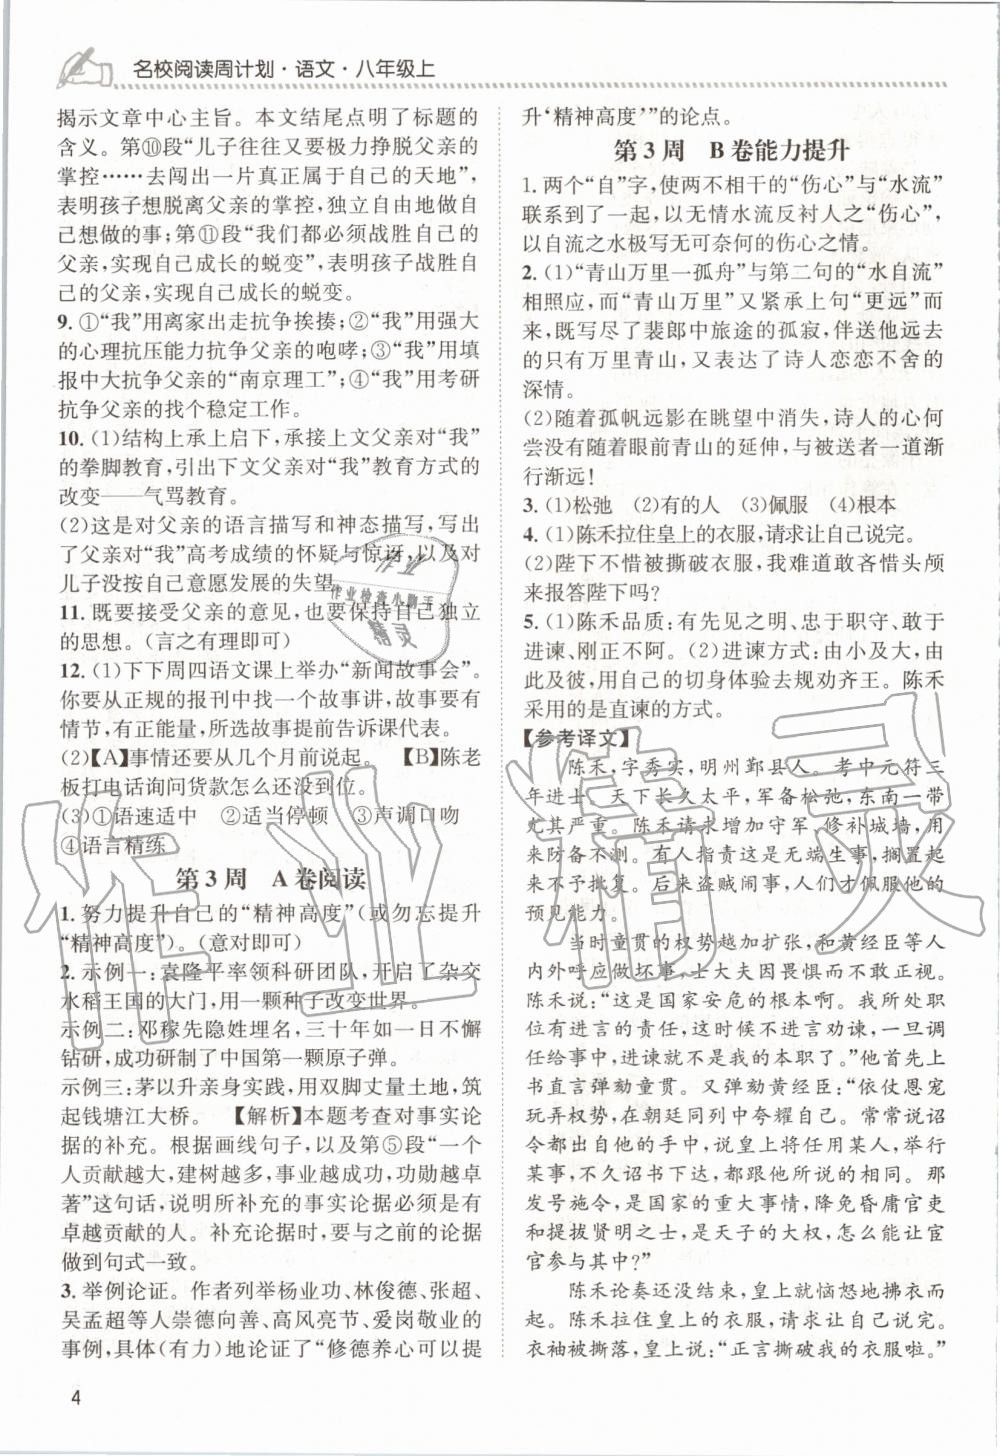 名校阅读周计划·语文·八年级上
揭示文章中心主旨。本文结尾点明了标题的
含义。第⑩段“儿子往往又要极力挣脱父亲的
掌控……去闯荡出一片真正属于自己的天地”，
表明孩子想脱离父亲的掌控，独立自由地做自
己想做的事；第⑪段“我们都必须战胜自己的
父亲，实现自己成长的蜕变”，表明孩子战胜自
己的父亲，实现自己成长的蜕变。
9. ①“我”用离家出走抗争挨揍；②“我”用强大
的心理抗压能力抗争父亲的咆哮；③“我”用填
报中大抗争父亲的“南京理工”；④“我”用考研
抗争父亲的找个稳定工作。
10. (1)结构上承上启下，承接上文父亲对“我”
的拳脚教育，引出下文父亲对“我”教育方式的
改变——气骂教育。
(2)这是对父亲的语言描写和神态描写，写出
了父亲对“我”高考成绩的怀疑与惊讶，以及对
儿子没按自己意愿发展的失望。
11. 既要接受父亲的意见，也要保持自己独立
的思想。（言之有理即可）
12. (1)下下周四语文课上举办“新闻故事会”。
你要从正规的报刊中找一个故事讲，故事要有
情节，有正能量，所选故事提前告诉课代表。
(2)【A】事情还要从几个月前说起。 【B】陈老
板打电话询问货款怎么还没到位。
(3)①语速适中 ②适当停顿 ③声调口吻
④语言精练
第 3 周 A 卷阅读
1. 努力提升自己的“精神高度”(或勿忘提升
“精神高度”)。（意对即可）
2. 示例一：袁隆平率领科研团队，开启了杂交
水稻王国的大门，用一颗种子改变世界。
示例二：邓稼先隐姓埋名，三十年如一日不懈
钻研，成功研制了中国第一颗原子弹。
示例三：茅以升亲身实践，用双脚丈量土地，筑
起钱塘江大桥。 【解析】本题考查对事实论
据的补充。根据画线句子，以及第⑤段“一个
人贡献越大，建树越多，事业越成功，功勋越卓
著”这句话，说明所补充的事实论据必须是有
卓越贡献的人。补充论据时，要与之前的论据
做到句式一致。
3. 举例论证。作者列举杨业功、林俊德、张超、
吴孟超等人崇德向善、高风亮节、爱岗敬业的
事例，具体(有力)地论证了“修德养心可以提
升‘精神高度’”的论点。
第 3 周 B 卷能力提升
1. 两个“自”字，使两不相干的“伤心”与“水流”
联系到了一起，以无情水流反衬人之“伤心”，
以自流之水极写无可奈何的伤心之情。
2. (1)“青山万里一孤舟”与第二句的“水自流”
相照应，而“青山万里”又紧承上句“更远”而
来，既写尽了裴郎中旅途的孤寂，伴送他远去
的只有万里青山，又表达了诗人恋恋不舍的
深情。
(2)随着孤帆远影在眺望中消失，诗人的心何
尝没有随着眼前青山的延伸，与被送者一道渐
行渐远！
3. (1)松弛 (2)有的人 (3)佩服 (4)根本
4. (1)陈禾拉住皇上的衣服，请求让自己说完。
(2)陛下不惜被撕破衣服，我难道敢吝惜头颅
来报答陛下吗？
5. (1)陈禾品质：有先见之明、忠于职守、敢于
进谏、刚正不阿。(2)进谏方式：由小及大，由
此及彼，用自己的切身体验去规劝齐王。陈禾
采用的是直谏的方式。
【参考译文】
陈禾，字秀实，明州鄞县人。考中元符三
年进士。天下长久太平，军备松弛，东南一带
尤其严重。陈禾请求增加守军，修补城墙，用
来防备不测。有人指责这是无端生事，搁置起
来不予批复。后来盗贼闹事，人们才佩服他的
预见能力。
当时童贯的权势越加扩张，和黄经臣等人
内外呼应做坏事，士大夫因畏惧而不敢正视。
陈禾说：“这是国家安危的根本啊。我所处职
位有进言的责任，这时候不进言劝谏，一旦调
任给事中，进谏就不是我的本职了。”他首先上
书直言弹劾童贯。又弹劾黄经臣：“依仗恩宠
玩弄权势，在朝廷同列中夸耀自己。常常说诏
令都出自他的手中，说皇上将任用某人，举行
某事，不久诏书下达，都跟他所说的相同。那
发号施令，是国家的重大事情，降免昏庸官吏
和提拔贤明之士，是天子的大权，怎么能让宦
官参与其中？”
陈禾论奏还没结束，皇上就恼怒地拂衣而
起。陈禾拉住皇上的衣服，请求让自己说完。
衣袖被撕落，皇上说：“正言撕破我的衣服啦。”
4
作业
作业检查小助手
精灵
作业精灵